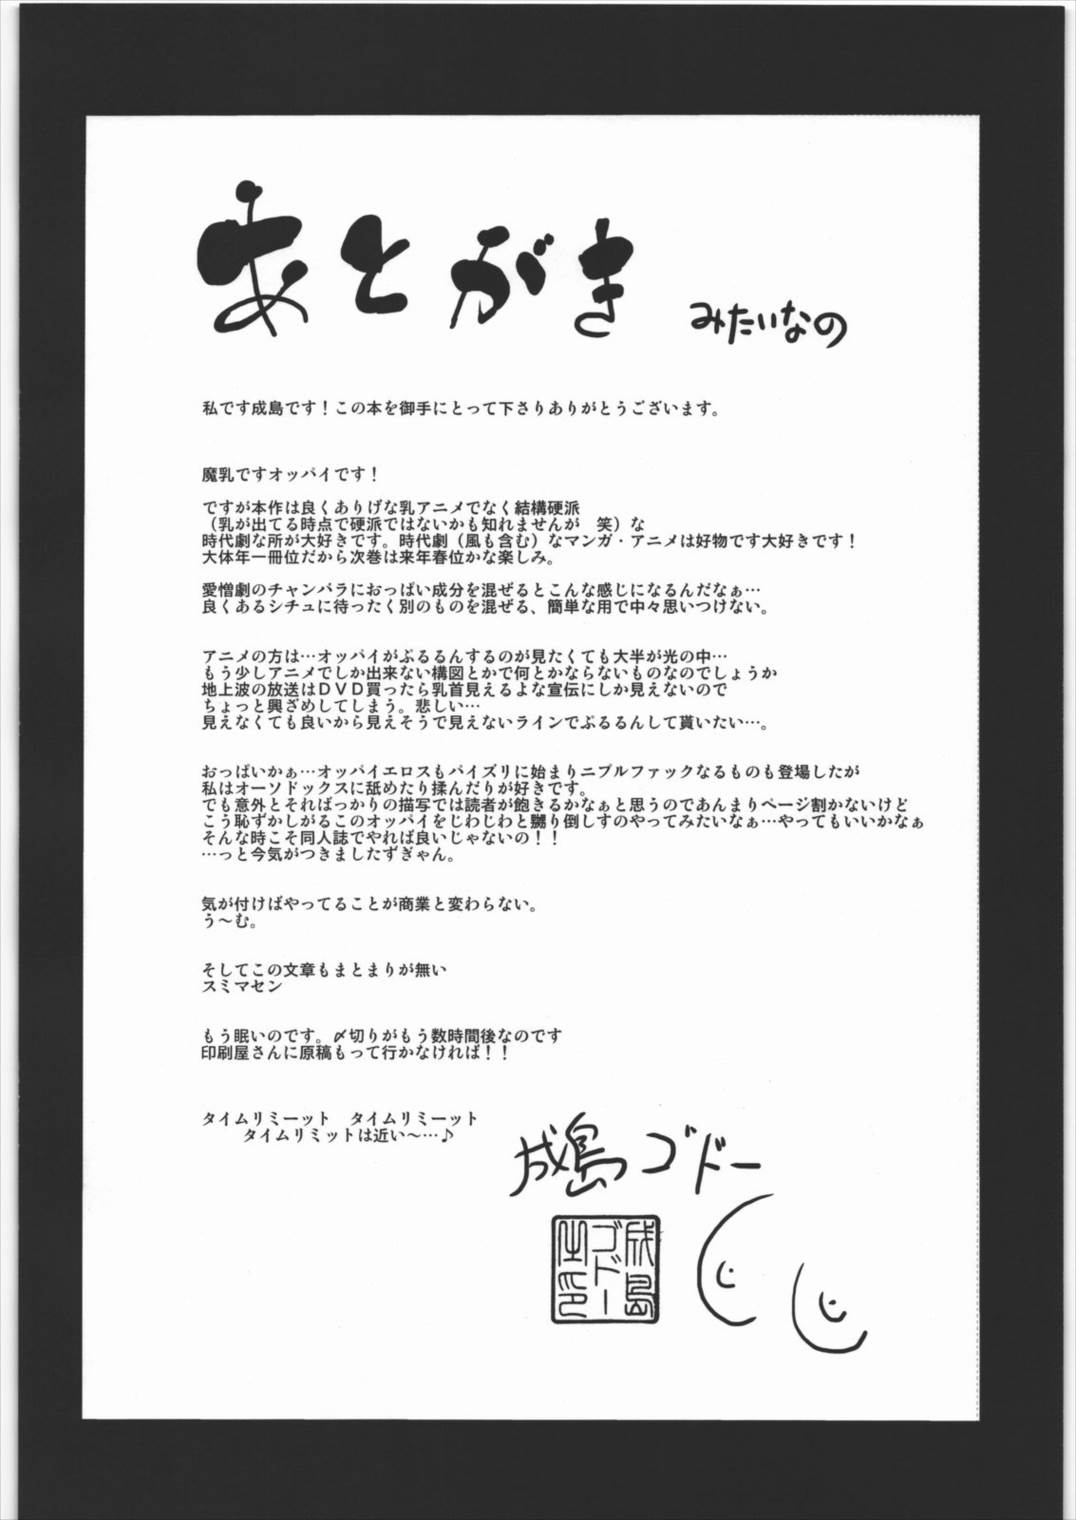 あとがき みたいなの
私です成島です！この本を御手にとって下さりありがとうございます。
魔乳ですオッパイです！
ですが本作は良くありげな乳アニメでなく結構硬派
（乳が出てる時点で硬派ではないかも知れませんが　笑）な
時代劇な所が大好きです。時代劇（風も含む）なマンガ・アニメは好物です大好きです！
大体年一冊位だから次巻は来年春位かな楽しみ。
愛憎劇のチャンバラにおっぱい成分を混ぜるとこんな感じになるんだなぁ…
良くあるシチュに待ったく別のものを混ぜる、簡単な用で中々思いつけない。
アニメの方は…オッパイがぷるるんするのが見たくても大半が光の中…
もう少しアニメでしか出来ない構図とかで何とかならないものなのでしょうか
地上波の放送はＤＶＤ買ったら乳首見えるよな宣伝にしか見えないので
ちょっと興ざめしてしまう。悲しい…
見えなくても良いから見えそうで見えないラインでぷるるんして貰いたい…。
おっぱいかぁ…オッパイエロスもパイズリに始まりニプルファックなるものも登場したが
私はオーソドックスに舐めたり揉んだりが好きです。
でも意外とそればっかりの描写では読者が飽きるかなぁと思うのであんまりページ割かないけど
こう恥ずかしがるこのオッパイをじわじわと嬲り倒しすのやってみたいなぁ…やってもいいかなぁ
そんな時こそ同人誌でやれば良いじゃないの！！
…っと今気がつきましたずぎゃん。
気が付けばやってることが商業と変わらない。
う～む。
そしてこの文章もまとまりが無い
スミマセン
もう眠いのです。〆切りがもう数時間後なのです
印刷屋さんに原稿もって行かなければ！！
タイムリミーット　タイムリミーット
タイムリミットは近い～…♪
成島ゴドー
成島
ゴドー
之印